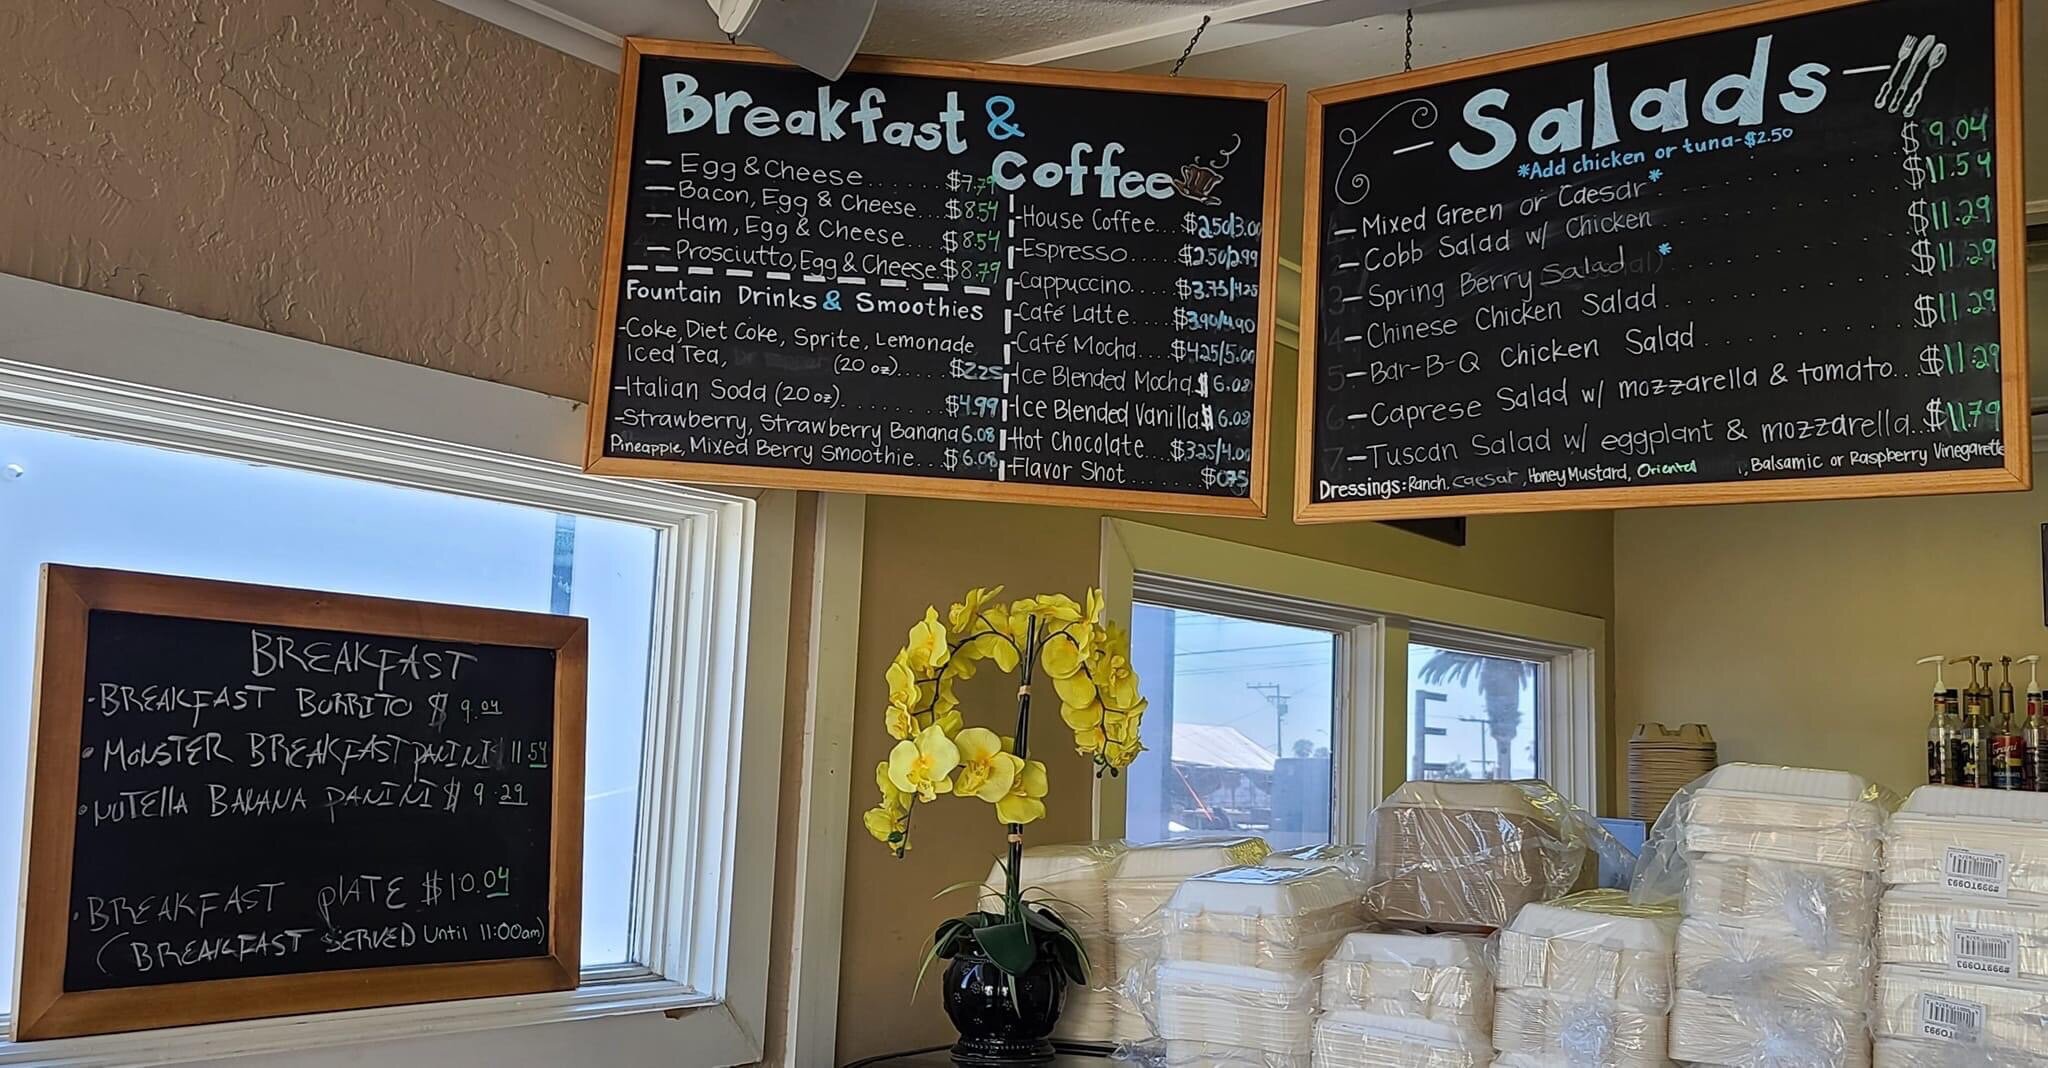 Breakfast &
Coffee
— Egg & Cheese....... $7.79
— Bacon, Egg & Cheese... $8.54
— Ham, Egg & Cheese.... $8.54
— Prosciutto, Egg & Cheese. $8.79
Fountain Drinks & Smoothies
-Coke, Diet Coke, Sprite, Lemonade,
Iced Tea, (20 oz).... $2.25
-Italian Soda (20 oz)......... $4.99
-Strawberry, Strawberry Banana 6.08
Pineapple, Mixed Berry Smoothie... $6.08
-House Coffee... $2.50/3.00
-Espresso..... $2.50/2.99
-Cappuccino.... $3.75/4.25
-Café Latte.... $3.90/4.90
-Café Mocha.... $4.25/5.00
-Ice Blended Mocha $6.08
-Ice Blended Vanilla $6.08
-Hot Chocolate... $3.25/4.00
-Flavor Shot........ $0.75
— Salads —
*Add chicken or tuna-$2.50
— Mixed Green or Caesar* $9.04
— Cobb Salad w/ Chicken $11.54
3— Spring Berry Salad * $11.29
4— Chinese Chicken Salad $11.29
5— Bar-B-Q Chicken Salad $11.29
6— Caprese Salad w/ mozzarella & tomato... $11.29
7— Tuscan Salad w/ eggplant & mozzarella... $11.79
Dressings: Ranch, Caesar, Honey Mustard, Oriental, Balsamic or Raspberry Vinegarette
BREAKFAST
• BREAKFAST BURRITO $9.04
• MONSTER BREAKFAST PANINI 11.54
• NUTELLA BANANA PANINI $9.29
• BREAKFAST PLATE $10.04
(BREAKFAST SERVED Until 11:00am)
E
Torani
#999TO993
#999TO993
#999TO993